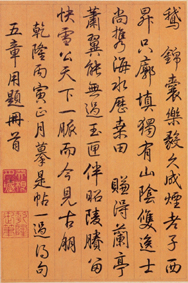 鵝錦囊樂毅久成煙老子西
昇只廓填獨有山陰雙逸士
尚攜海水歷桑田　賺得蘭亭
蕭翼能無過玉匣伴昭陵賸留
快雪公天下一脈而今見古朋
乾隆丙寅正月摹是帖一過得句
五章用題冊首